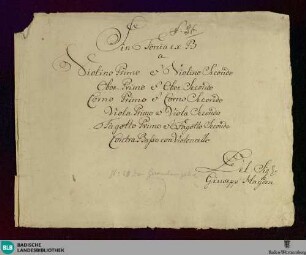 Sinfonia ex B
a
Violino Primo e Violino Secondo
Oboe Primo e Oboe Secondo
Corno Primo e Corno Secondo
Viola Primo e Viola Secondo
Fagotto Primo e Fagotto Secondo
Contra Basso con Violoncello
Del Sig:
Giuseppe Hayden
BLB
BADISCHE
LANDESBIBLIOTHEK
Baden-Württemberg